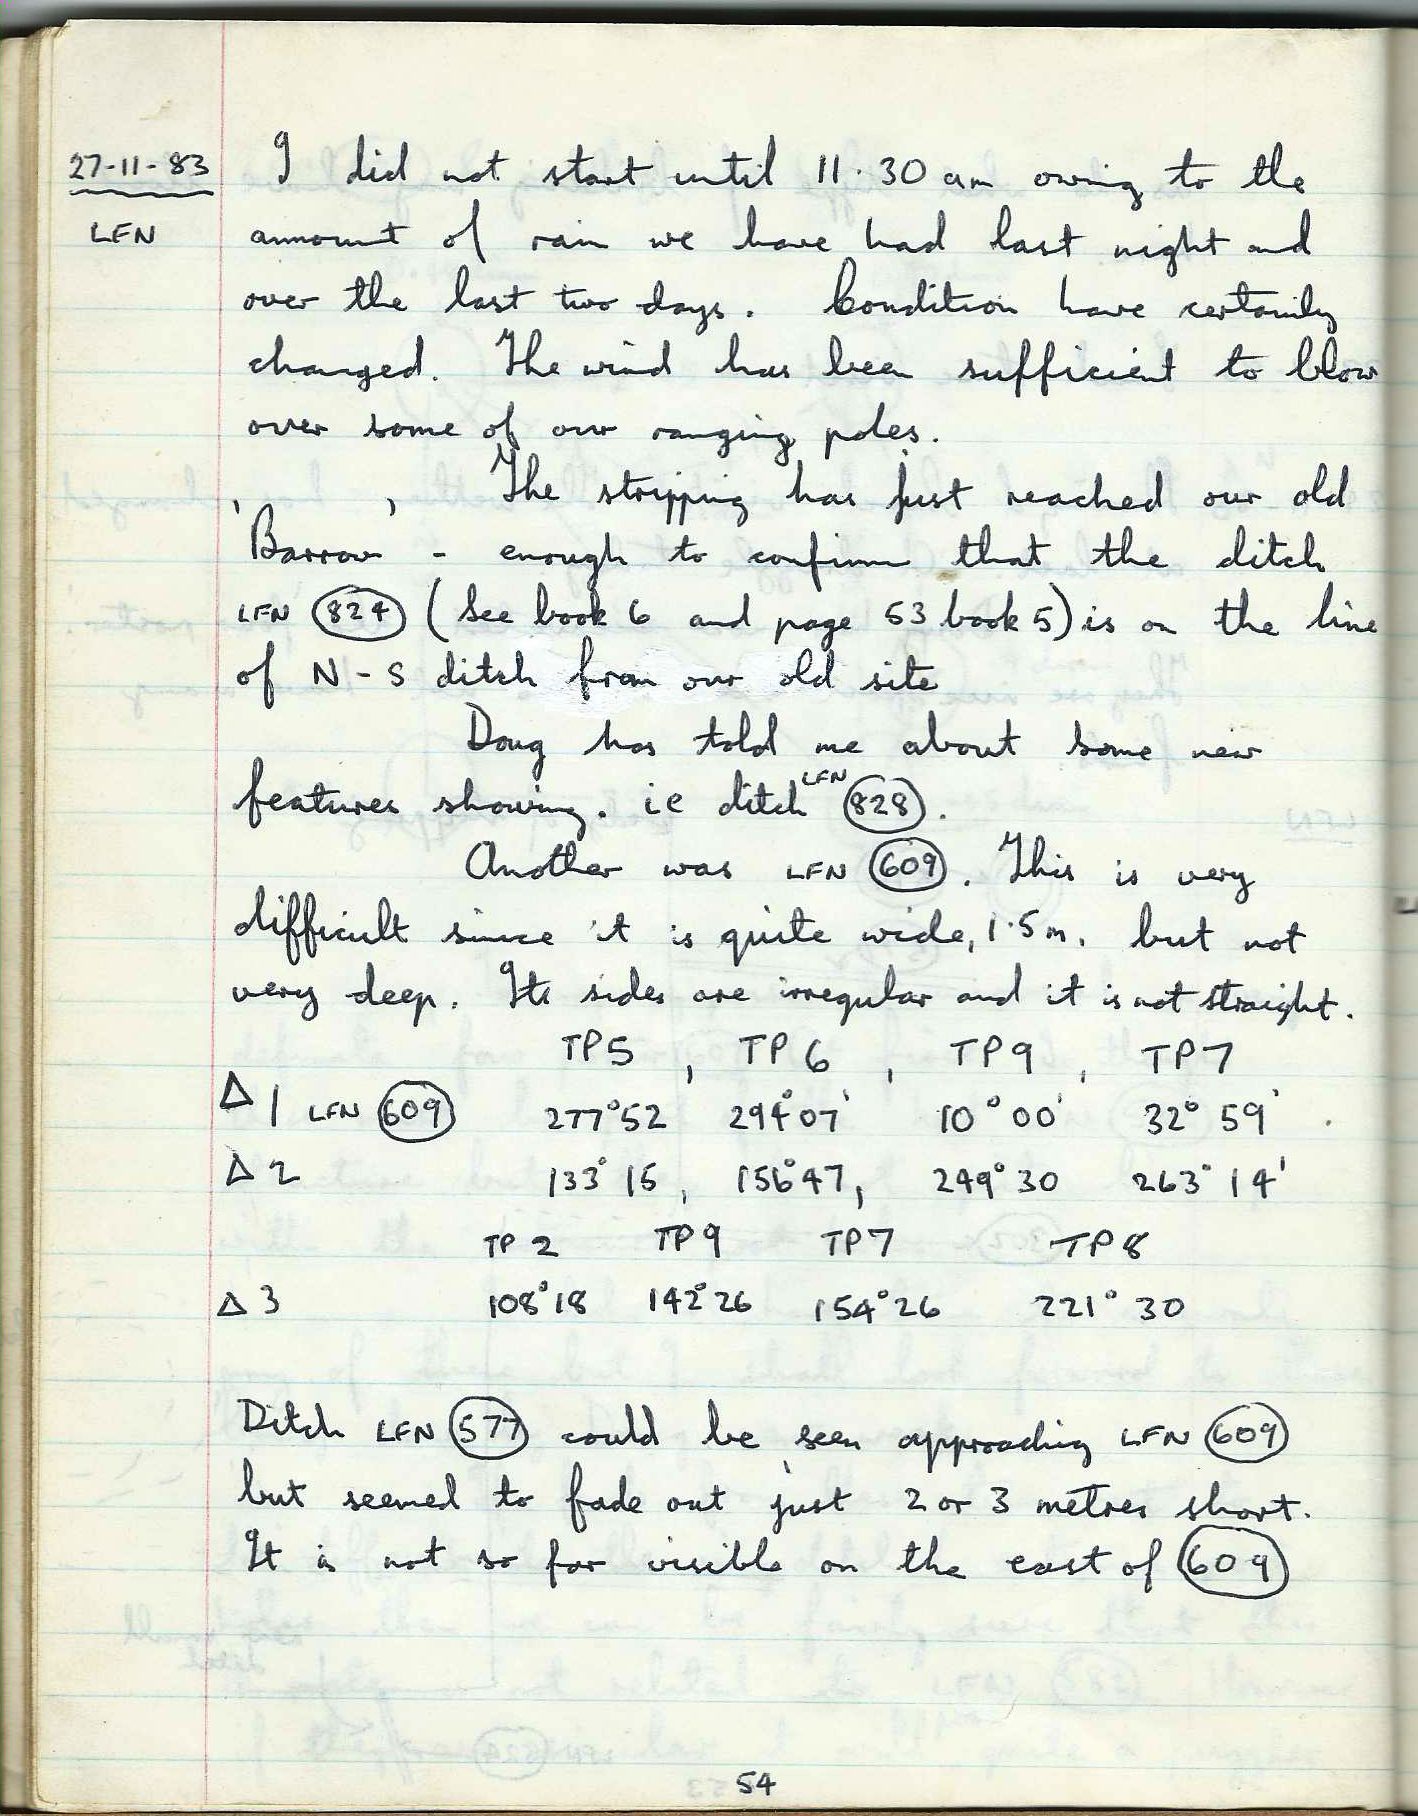 27-11-83 I did not start until 11.30 am owing to the
LFN ammount of rain we have had last night and
over the last two days. Condition have certainly
changed. The wind has been sufficient to blow
over some of our ranging poles.
The stripping has just reached our old
'Barrow' - enough to confirm that the ditch
LFN 824 (See book 6 and page 53 book 5) is on the line
of N-S ditch from our old site
Doug has told me about some new
features showing. ie ditch LFN 828.
Another was LFN 609. This is very
difficult since it is quite wide, 1.5m, but not
very deep. Its sides are irregular and it is not straight.
TP5, TP6, TP9, TP7
Δ1 LFN 609 277°52 294°07' 10°00' 32°59'
Δ2 133°15, 156°47, 249°30 263°14'
TP2 TP9 TP7 TP8
Δ3 108°18 142°26 154°26 221°30
Ditch LFN 577 could be seen approaching LFN 609
but seemed to fade out just 2 or 3 metres short.
It is not so far visible on the east of 609
54